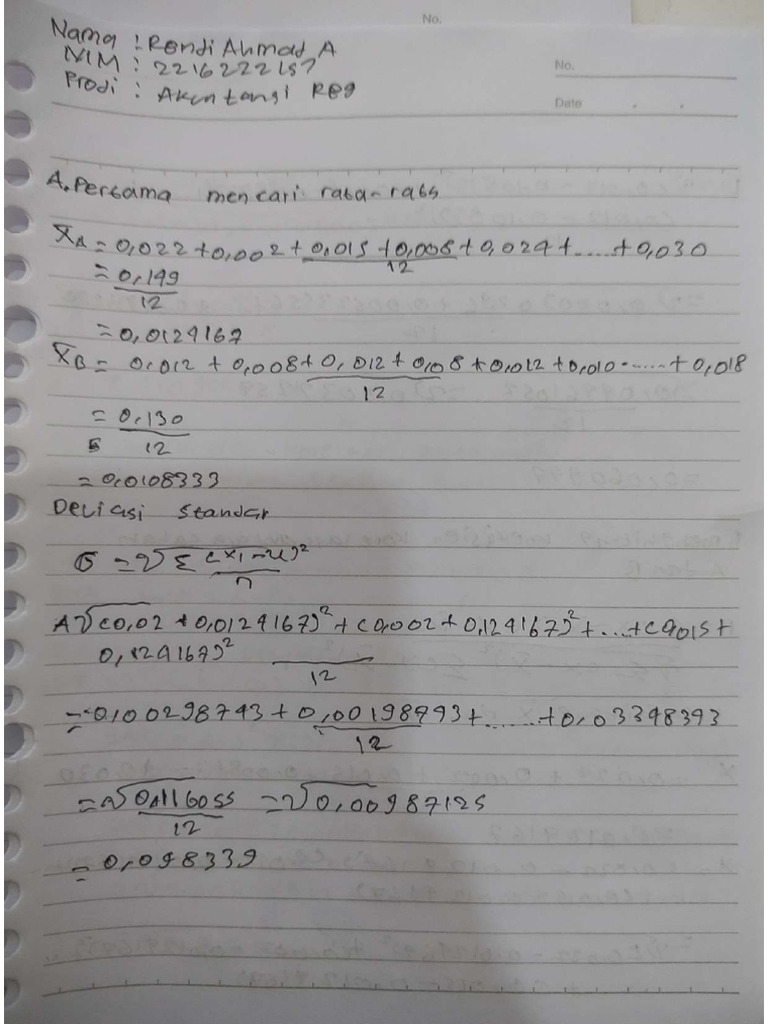 No.
Nama : Rendi Ahmad A
NIM : 2216222157
Prodi : Akuntansi Reg
No.
Date
A. Pertama mencari rata-rata
X̄A = 0,022 + 0,002 + 0,015 + 0,008 + 0,024 + ..... + 0,030
12
= 0,149
12
= 0,0129167
X̄B = 0,012 + 0,008 + 0,012 + 0,08 + 0,012 + 0,010 ...... + 0,018
12
= 0,130
12
= 0,0108333
Deviasi Standar
σ = √Σ (xi - u)²
n
A √(0,02 + 0,0129167)² + (0,002 + 0,129167)² + ... + (0,015 +
0,129167)²
12
= 0,100298743 + 0,00198993 + ...... + 0,03348393
12
= √0,1116055 = √0,00987125
12
= 0,098339